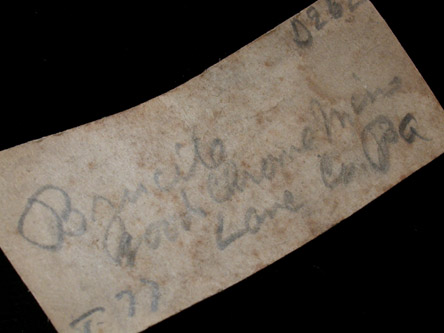 D262
Brucite
Wood Chrome Mine
Lanc Co Pa
77